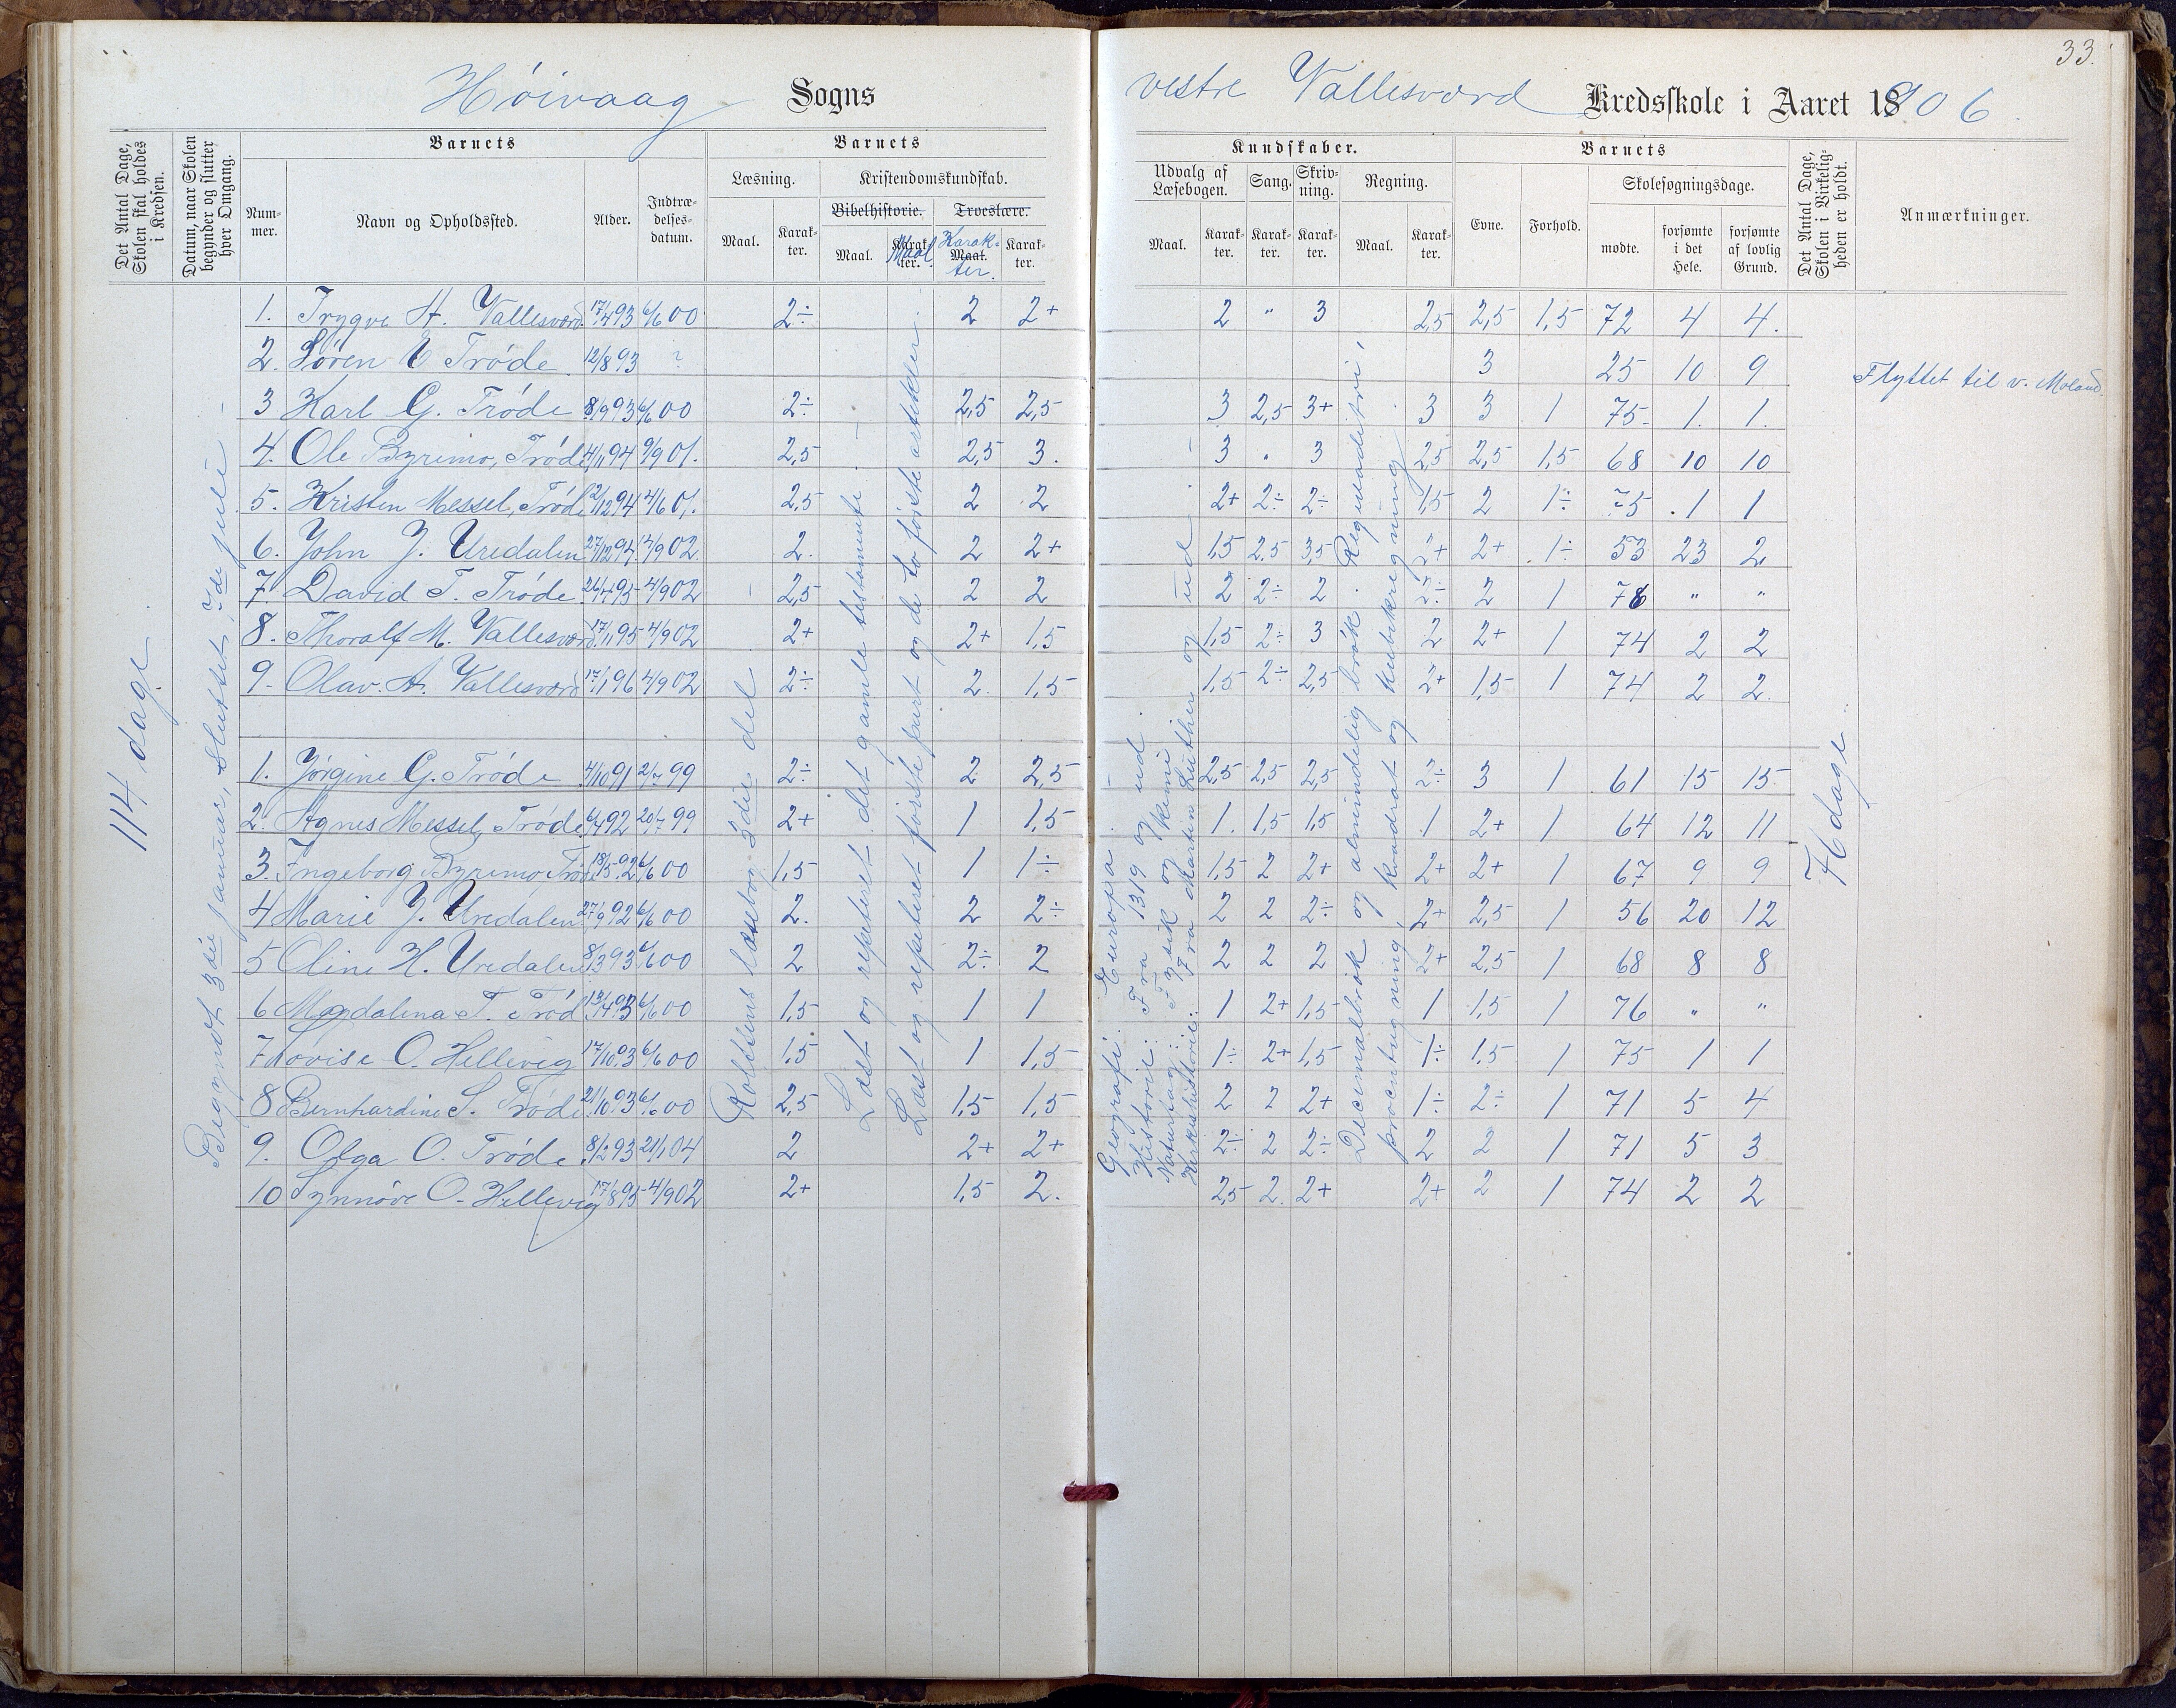 33.
Høivaag Sogns vestre Vallesværd Kredsskole i Aaret 1906.
Det Antal Dage, Skolen skal holdes i Kredsen.
Datum, naar Skolen begynder og slutter hver Omgang.
Barnets
Nummer.
Navn og Opholdssted.
Alder.
Indtrædelsesdatum.
Barnets
Læsning.
Maal.
Karakter.
Kristendomskundskab.
Bibelhistorie.
Maal.
Karakter. Maal
Troeslære.
Maal. Karakter.
Karakter.
Kundskaber.
Udvalg af Læsebogen.
Maal.
Karakter.
Sang.
Karakter.
Skrivning.
Karakter.
Regning.
Maal.
Karakter.
Barnets
Evne.
Forhold.
Skolesøgningsdage.
mødte.
forsømte i det Hele.
forsømte af lovlig Grund.
Det Antal Dage, Skolen i Virkeligheden er holdt.
Anmærkninger.
114 dage
Begyndt 3die januar, sluttet 7de juli
Rolfsens læsebog 3die del
Læst og repeteret det gamle testamente
Læst og repeteret første part og de to første artikler.
Geografi: Europa
Historie: Fra 1319 og ud.
Naturfag: Fysik og kemi
Kirkehistorie: Fra Martin Luther og ud
Decimalbrøk og almindelig brøk. Reguladetri,
procentregning, kvadrat og kubikregning
76 dage
1. Trygve A. Vallesværd 17/4 93 6/6 00 2÷ 2 2+ 2 " 3 2,5 2,5 1,5 72 4 4.
2. Søren E Trøde 12/8 93 ? 3 25 10 9 Flyttet til v. Moland.
3 Karl G. Trøde 8/9 93 6/6 00 2÷ 2,5 2,5 3 2,5 3+ 3 3 1 75 1. 1.
4. Ole Byrimo, Trøde 4/11 94 9/9 01. 2,5 2,5 3. 3 " 3 2,5 2,5 1,5 68 10 10
5. Kristen Messel, Trøde 2/12 94 4/6 01. 2,5 2 2 2+ 2÷ 2÷ 1,5 2 1÷ 75 1 1
6. John J. Uredalen 27/12 94 4/9 02 2. 2 2+ 1,5 2,5 3,5 2+ 2+ 1÷ 53 23 2
7. David T. Trøde 26/4 95 4/9 02 2,5 2 2 2 2÷ 2 2÷ 2 1 76 " "
8. Thoralf M. Vallesværd 17/11 95 4/9 02 2+ 2+ 1,5 1,5 2÷ 3 2 2+ 1 74 2 2
9. Olav. A. Vallesværd 17/1 96 4/9 02 2÷ 2. 1,5 1,5 2÷ 2,5 2+ 1,5 1 74 2 2.
1. Jørgine G. Trøde 4/10 91 2/7 99 2÷ 2 2,5 2,5 2,5 2,5 2÷ 3 1 61 15 15
2. Agnes Messel, Trøde 6/4 92 20/7 99 2+ 1 1,5 1. 1,5 1,5 1 2+ 1 64 12 11
3. Ingeborg Byrimo, Trøde 18/5 92 6/6 00 1,5 1 1÷ 1,5 2 2+ 2+ 2+ 1 67 9 9
4 Marie J. Uredalen 27/9 92 6/6 00 2. 2 2÷ 2 2 2÷ 2+ 2,5 1 56 20 12
5 Oline H. Uredalen 8/3 93 6/6 00 2 2÷ 2 2 2 2 2+ 2,5 1 68 8 8
6 Magdalena T. Trød 13/4 93 6/6 00 1,5 1 1 1 2+ 1,5 1 1,5 1 76 " "
7 Lovise O. Hellevig 17/10 93 6/6 00 1,5 1 1,5 1÷ 2+ 1,5 1÷ 1,5 1 75 1 1
8 Bernhardine S. Trøde 21/10 93 6/6 00 2,5 1,5 1,5 2 2 2+ 1÷ 2÷ 1 71 5 4
9. Olga O. Trøde 8/12 93 21/1 04 2 2+ 2+ 2÷ 2 2÷ 2 2 1 71 5 3
10 Synnøve O. Hellevig 17/8 95 4/9 02 2+ 1,5 2. 2,5 2. 2+ 2+ 2 1 74 2 2